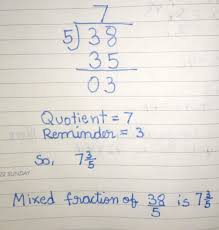 7
5)38
35
03
Quotient = 7
Reminder = 3
So, 7 3/5
22 SUNDAY
Mixed fraction of 38/5 is 7 3/5